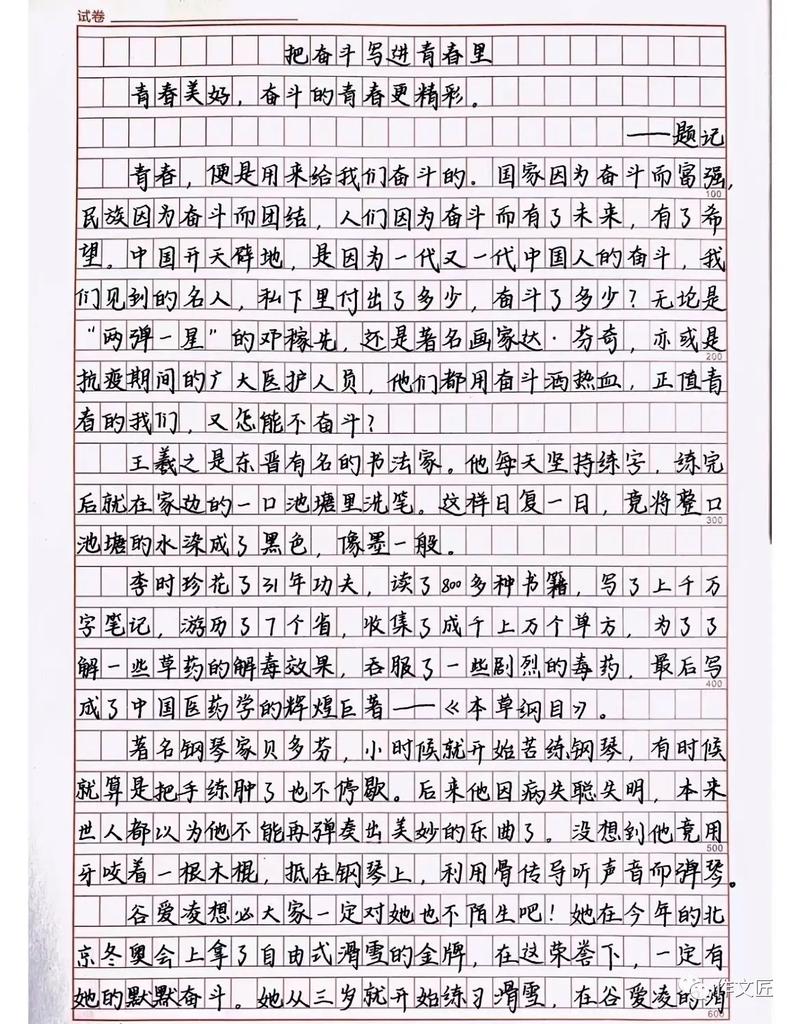 试卷
把奋斗写进青春里
青春美妙，奋斗的青春更精彩。
——题记
青春，便是用来给我们奋斗的。国家因为奋斗而富强，
100
民族因为奋斗而团结，人们因为奋斗而有了未来，有了希
望。中国开天辟地，是因为一代又一代中国人的奋斗，我
们见到的名人，私下里付出了多少，奋斗了多少？无论是
“两弹一星”的邓稼先，还是著名画家达·芬奇，亦或是
200
抗疫期间的广大医护人员，他们都用奋斗洒热血，正值青
春的我们，又怎能不奋斗？
王羲之是东晋有名的书法家。他每天坚持练字，练完
后就在家边的一口池塘里洗笔。这样日复一日，竟将整口
300
池塘的水染成了黑色，像墨一般。
李时珍花了31年功夫，读了800多种书籍，写了上千万
字笔记，游历了7个省，收集了成千上万个单方，为了了
解一些草药的解毒效果，吞服了一些剧烈的毒药，最后写
400
成了中国医药学的辉煌巨著——《本草纲目》。
著名钢琴家贝多芬，小时候就开始苦练钢琴，有时候
就算是把手练肿了也不停歇。后来他因病失聪失明，本来
世人都以为他不能再弹奏出美妙的乐曲了。没想到他竟用
500
牙咬着一根木棍，抵在钢琴上，利用骨传导听声音而弹琴。
谷爱凌想必大家一定对她也不陌生吧！她在今年的北
京冬奥会上拿了自由式滑雪的金牌，在这荣誉下，一定有
她的默默奋斗。她从三岁就开始练习滑雪，在谷爱凌的滑
600
作文匠